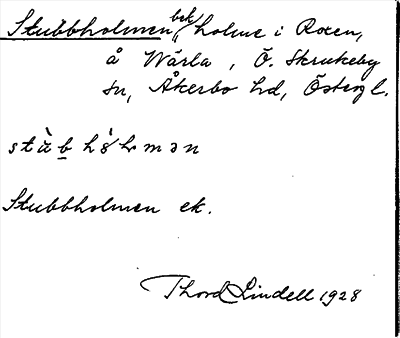 Stubbholmen, bek holme i Roxen,
å Wärla, Ö. Skrukeby
sn, Åkerbo hd, Östergl.
stùb hòlmən
Stubbholmen ek.
Thord Lindell 1928